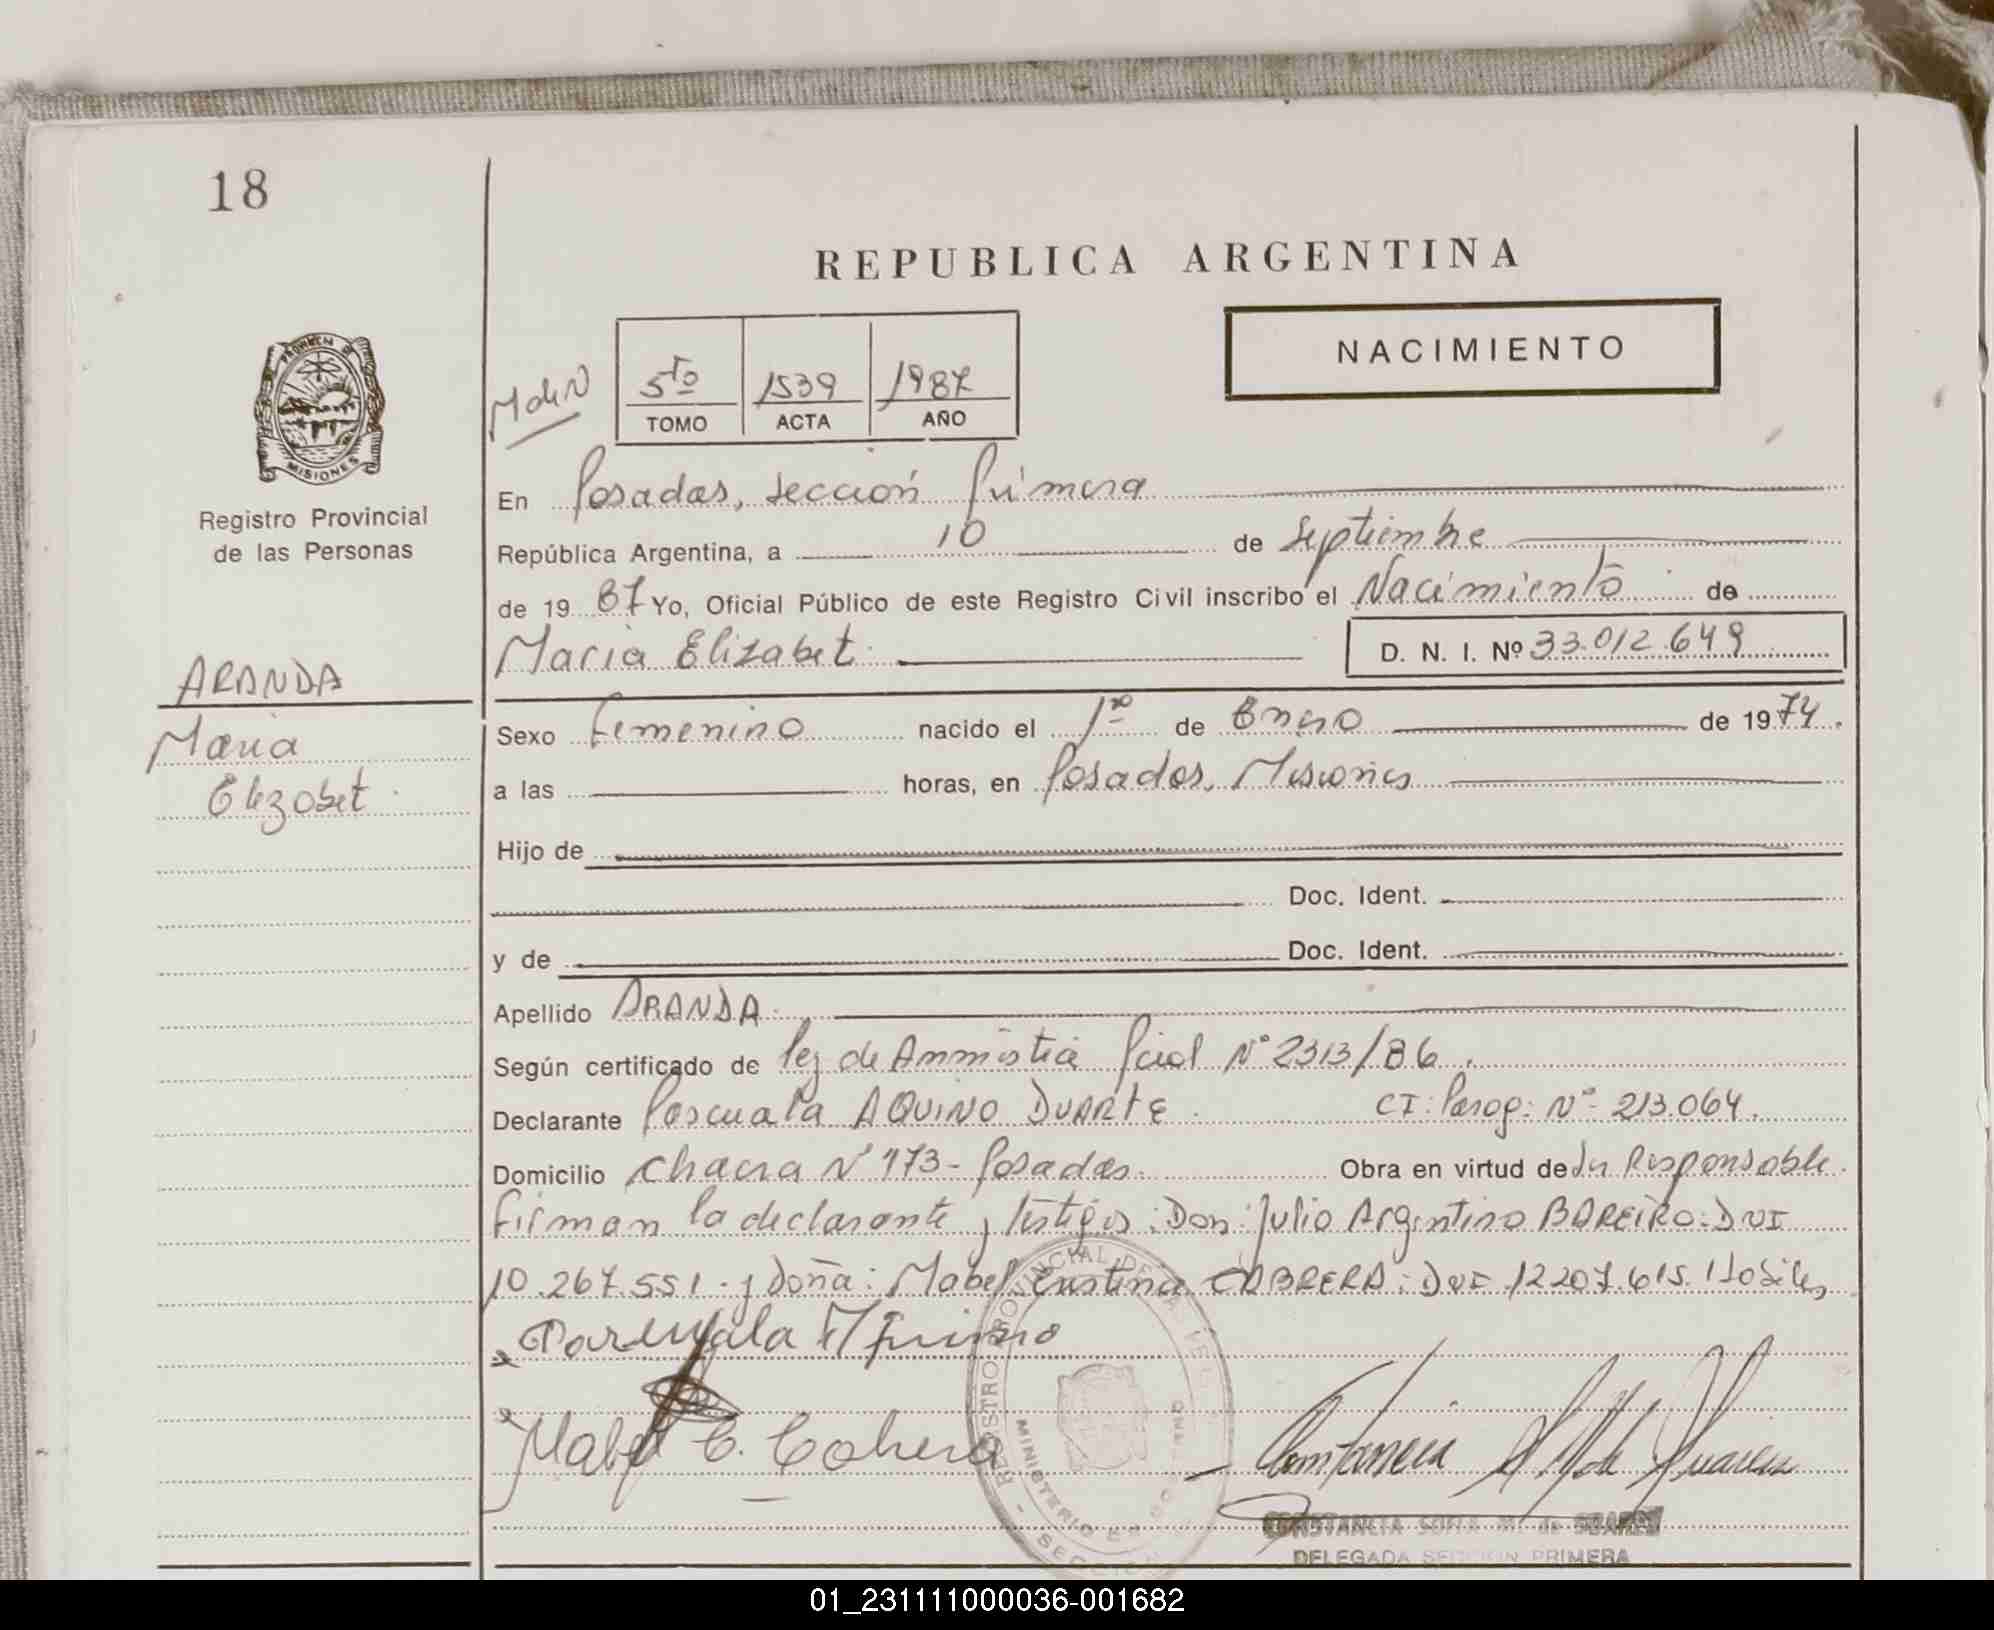 18
REPUBLICA ARGENTINA
NACIMIENTO
5to 1539 1987
TOMO ACTA AÑO
PROVINCIA DE
MISIONES
Registro Provincial
de las Personas
En Posadas, sección Primera
República Argentina, a 10 de Septiembre
de 19 87 Yo, Oficial Público de este Registro Civil inscribo el Nacimiento de
Maria Elizabet. D. N. I. Nº 33.012.649
ARANDA
Maria
Elizabet.
Sexo Femenino nacido el 1ro de Enero de 1974.
a las horas, en Posadas, Misiones
Hijo de
Doc. Ident.
y de Doc. Ident.
Apellido ARANDA.
Según certificado de ley de Amnistia Pcial Nº 2313/86.
Declarante Pascuala AQUINO DUARTE. CI: Parag: Nº 213.064.
Domicilio Chacra Nº 173- Posadas. Obra en virtud de ser Responsable.
Firman la declarante y testigos: Don: Julio Argentino BAREIRO: DNI
10.267.551. y Doña: Mabel Cristina CABRERA: DNI. 12207.615. Hábiles,
Aquino
Mabel C. Cabrera
REGISTRO PROVINCIAL DE LAS
MINISTERIO DE GOBIERNO
SECCION
CONSTANCIA SOFIA M. de SUAREZ
DELEGADA SECCION PRIMERA
01_231111000036-001682